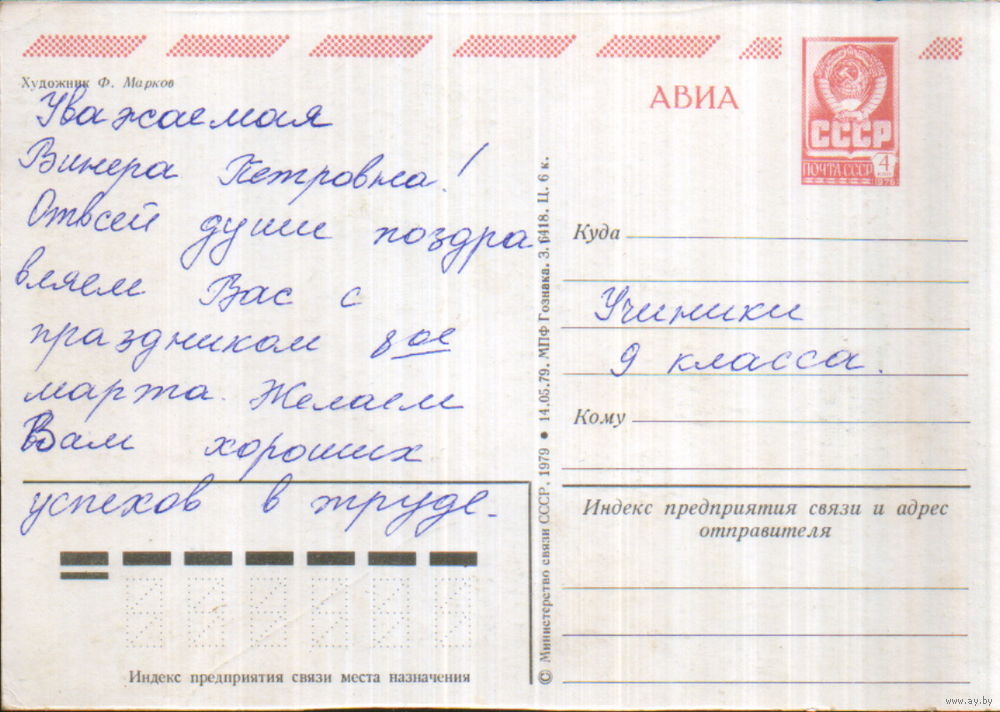 Художник Ф. Марков
Уважаемая
Винера Петровна!
Отвсей души поздра
вляем Вас с
праздником 8ое
марта. Желаем
Вам хороших
успехов в труде.
Индекс предприятия связи места назначения
© Министерство связи СССР, 1979 • 14.05.79. МПФ Гознака. З. 6418. Ц. 6 к.
АВИА
СССР
ПОЧТА СССР
4
КОП
1976
Куда
Учиники
9 класса.
Кому
Индекс предприятия связи и адрес
отправителя
www.ay.by